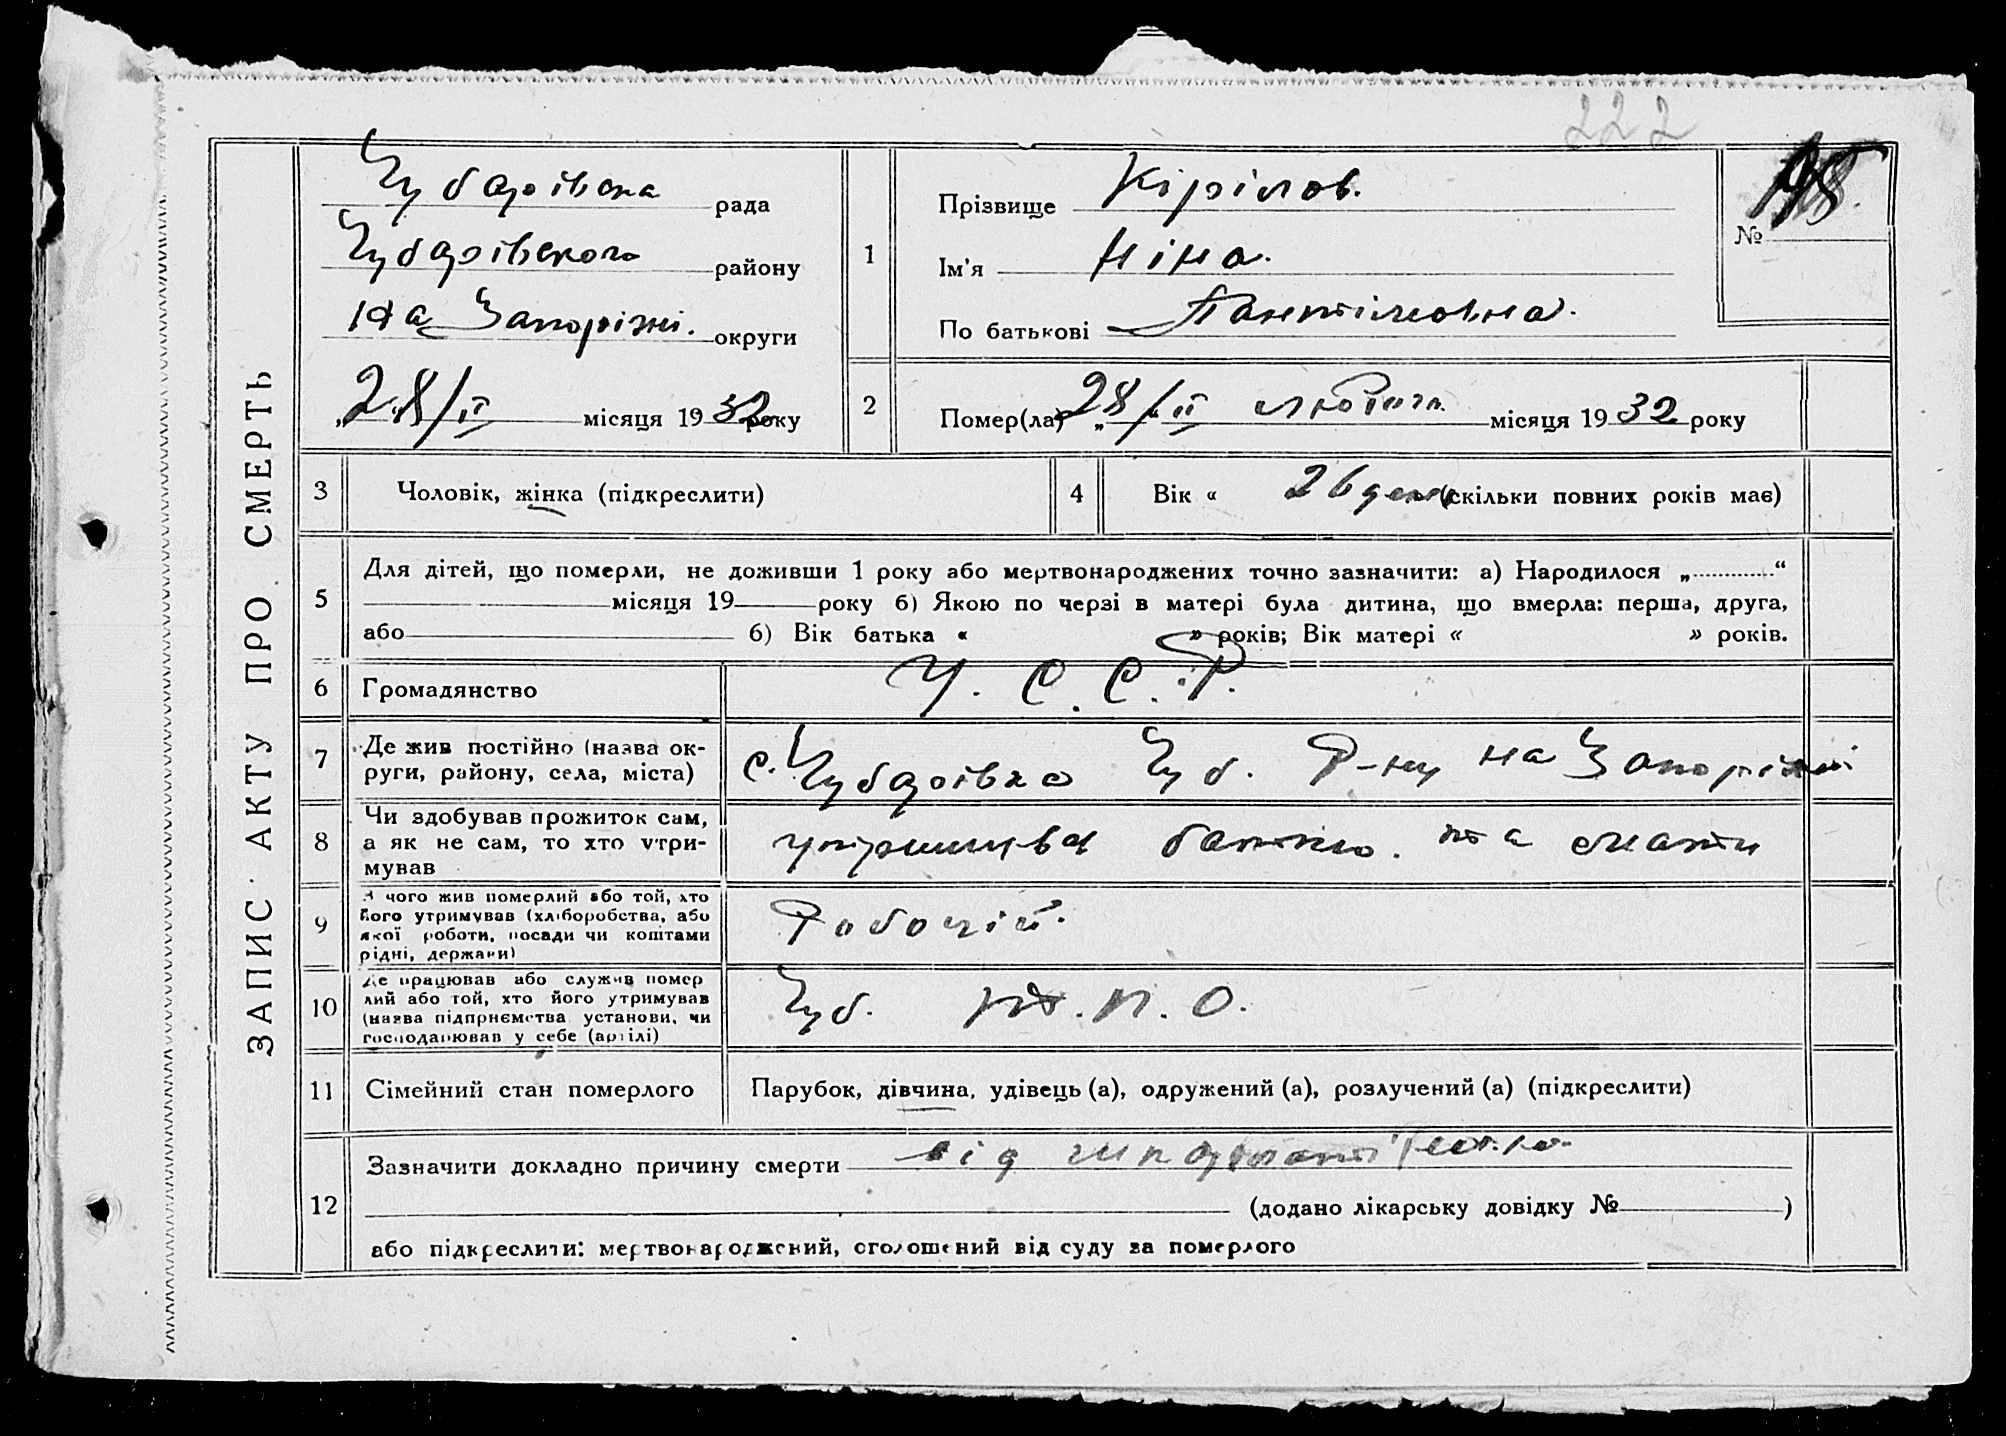 222
ЗАПИС АКТУ ПРО СМЕРТЬ
Чубарівска рада
Чубарівского району
На Запоріжі. округи
„28/II місяця 1932 року
1
Прізвище Кірілов.
Ім'я Ніна.
По батькові
№
2
Помер(ла) „28/II лютого місяця 1932 року
3 Чоловік, жінка (підкреслити)
4 Вік « 26 ден (скільки повних років має)
5 Для дітей, що померли, не доживши 1 року або мертвонароджених точно зазначити: а) Народилося „ “
місяця 19 року б) Якою по черзі в матері була дитина, що вмерла: перша, друга,
або б) Вік батька « » років; Вік матері « » років.
6 Громадянство У.С.С.Р.
7 Де жив постійно (назва ок-
руги, району, села, міста) с. Чубарівка Чуб. Р-ну на Запоріжжі
8 Чи здобував прожиток сам,
а як не сам, то хто утри-
мував утримував батько та мати
9 З чого жив померлий або той, хто
його утримував (хліборобства, або
якої роботи, посади чи коштами
рідні, держави) Робочій.
10 Де працював або служив помер
лий або той, хто його утримував
(назва підприємства установи, чи
господарював у себе (артілі) Чуб. П.О.
11 Сімейний стан померлого Парубок, дівчина, удівець (а), одружений (а), розлучений (а) (підкреслити)
12 Зазначити докладно причину смерти від
(додано лікарську довідку № )
або підкреслити: мертвонароджений, оголошений від суду за померлого